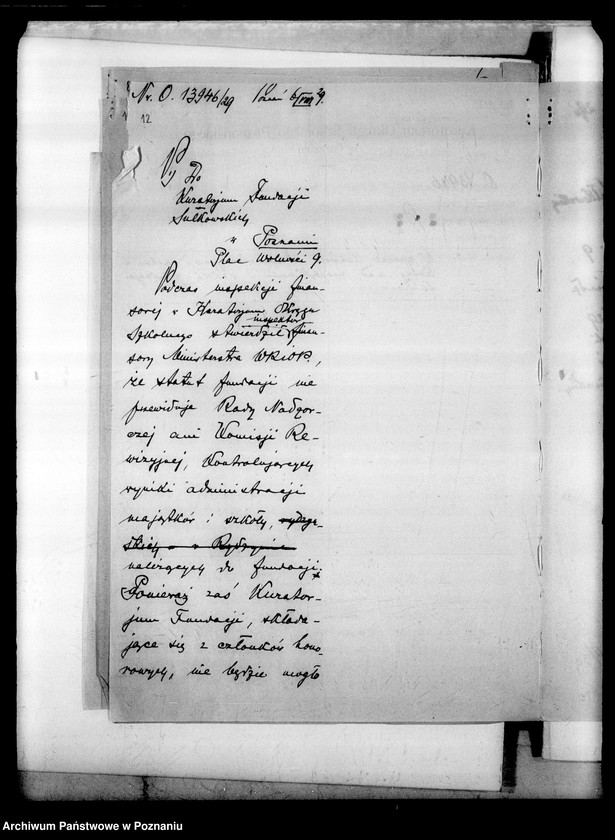 1
Nr. O. 13946/29 6/VIII 29.
12
Do
Kuratorjum Fundacji
Sułkowskich
w Poznaniu
Plac Wolności 9.
Podczas inspekcji finan-
sowej w Kuratorjum Okręgu
inspektor
Szkolnego stwierdził finan-
sowy Ministerstwa WRiOP.,
że statut fundacji nie
przewiduje Rady Nadzor-
czej ani Komisji Re-
wizyjnej, kontrolujących
wyniki administracji
majątków i szkoły,
w Rydzynie
należących do fundacji.
Ponieważ zaś Kurator-
jum Fundacji, składa-
jące się z członków hono-
rowych, nie będzie mogło
Archiwum Państwowe w Poznaniu